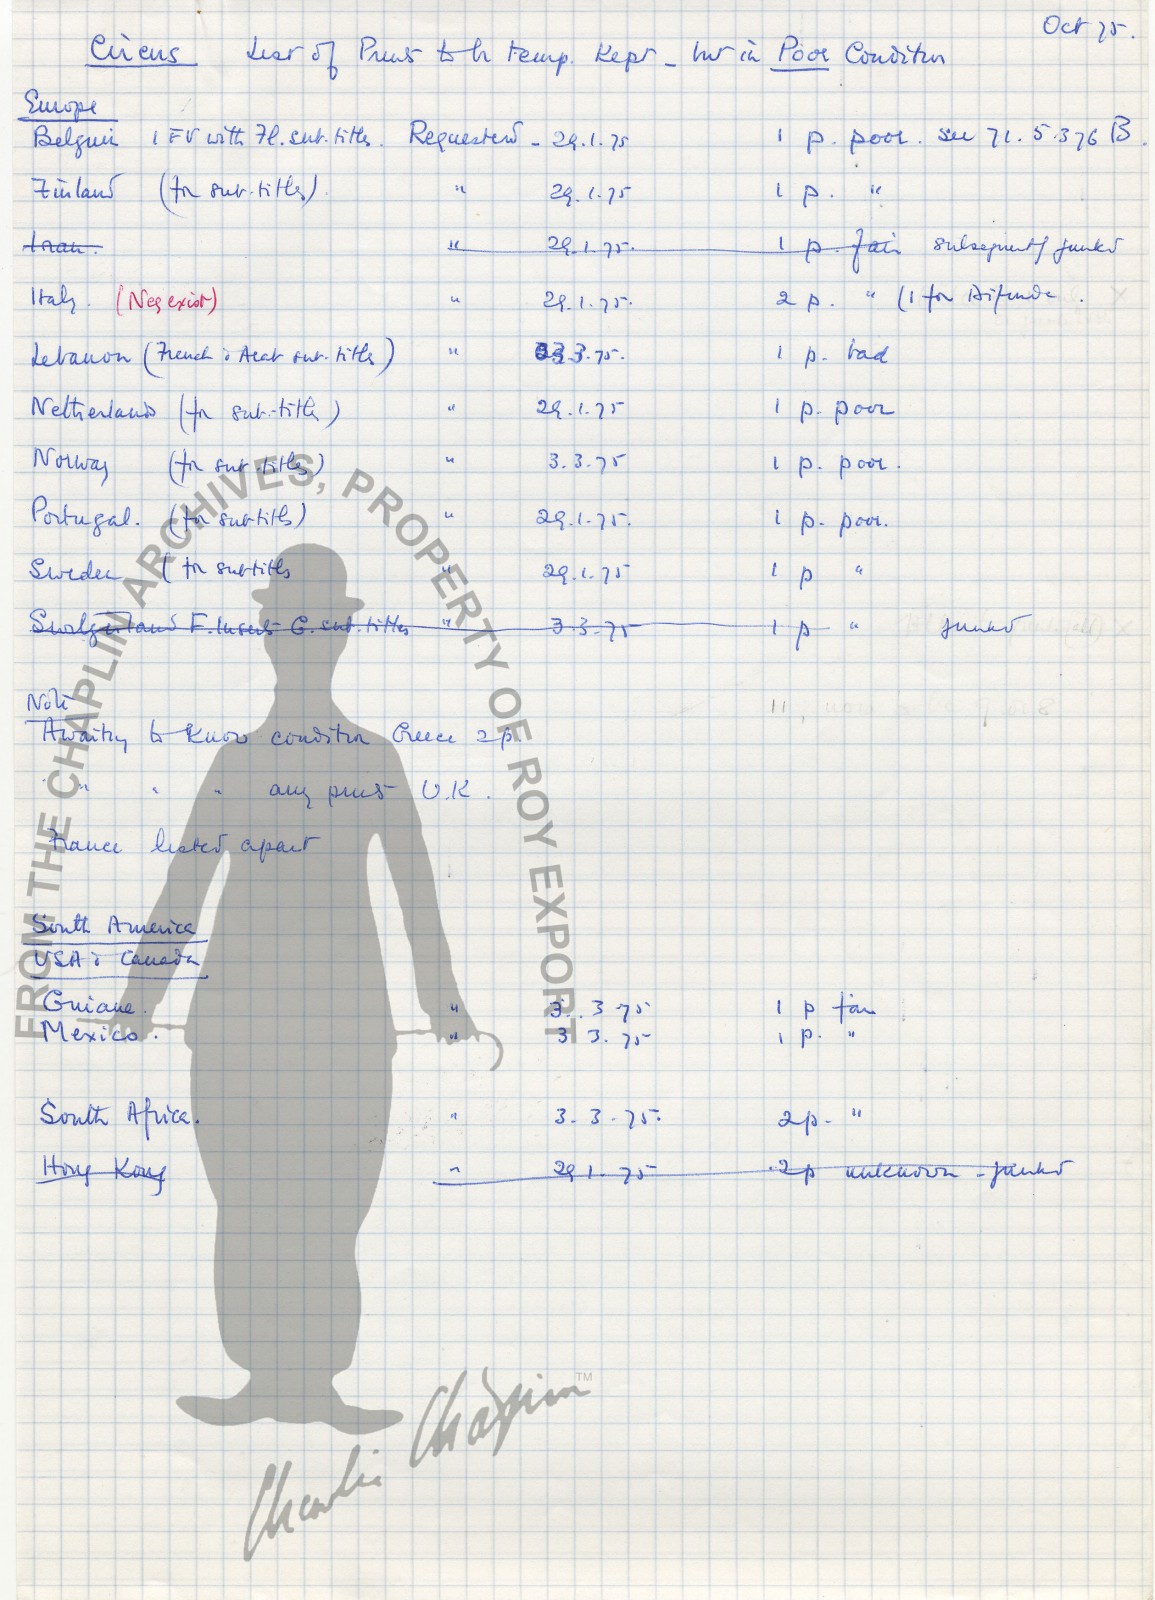 Oct 75.
Circus List of Prints to be temp. Kept - but in Poor Condition
Europe
Belgium 1 FV with Fl. sub-titles. Requested - 29.1.75 1 p. poor. see 71.5.376 B.
Finland (for sub-titles). " 29.1.75 1 p. "
Iran. " 29.1.75. 1 p. fair subsequently junked
Italy. (Neg exist) " 29.1.75. 2 p. " (1 for Difunde.
Lebanon (French & Arab sub-titles) " 3.3.75. 1 p. bad
Netherlands (for sub-titles) " 29.1.75 1 p. poor
Norway (for sub-titles) " 3.3.75 1 p. poor.
Portugal. (for subtitles) " 29.1.75. 1 p. poor.
Sweden (for subtitles " 29.1.75 1 p "
Switzerland F. Inserts G. sub.titles " 3.3.75 1 p " junked
Note
Awaiting to know condition Greece 2p
" " " any prints U.K.
France listed apart
South America
USA & Canada
Guiane. " 3.3.75 1 p fair
Mexico. " 3.3.75 1 p. "
South Africa. " 3.3.75. 2p. "
Hong Kong " 29.1.75 2p unknown - junked
FROM THE CHAPLIN ARCHIVES, PROPERTY OF ROY EXPORT
Charlie Chaplin™